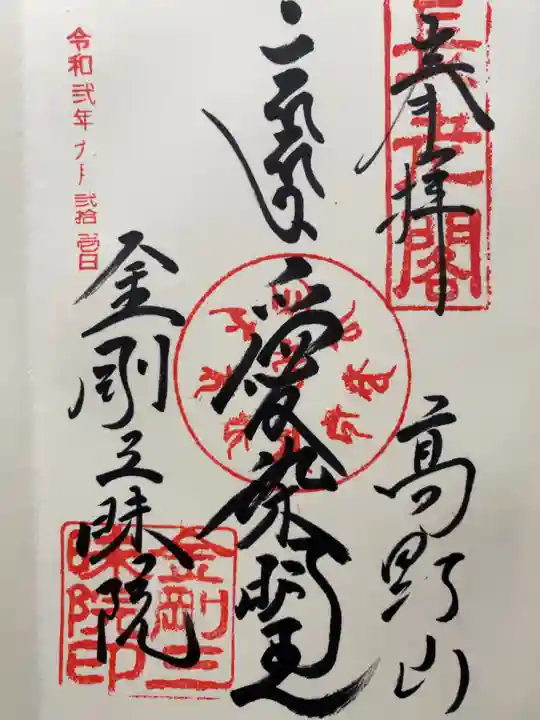 奉拝
高野山
愛染明王
金剛三昧院
令和弐年 九月 弐拾壱日
金剛三
昧院印